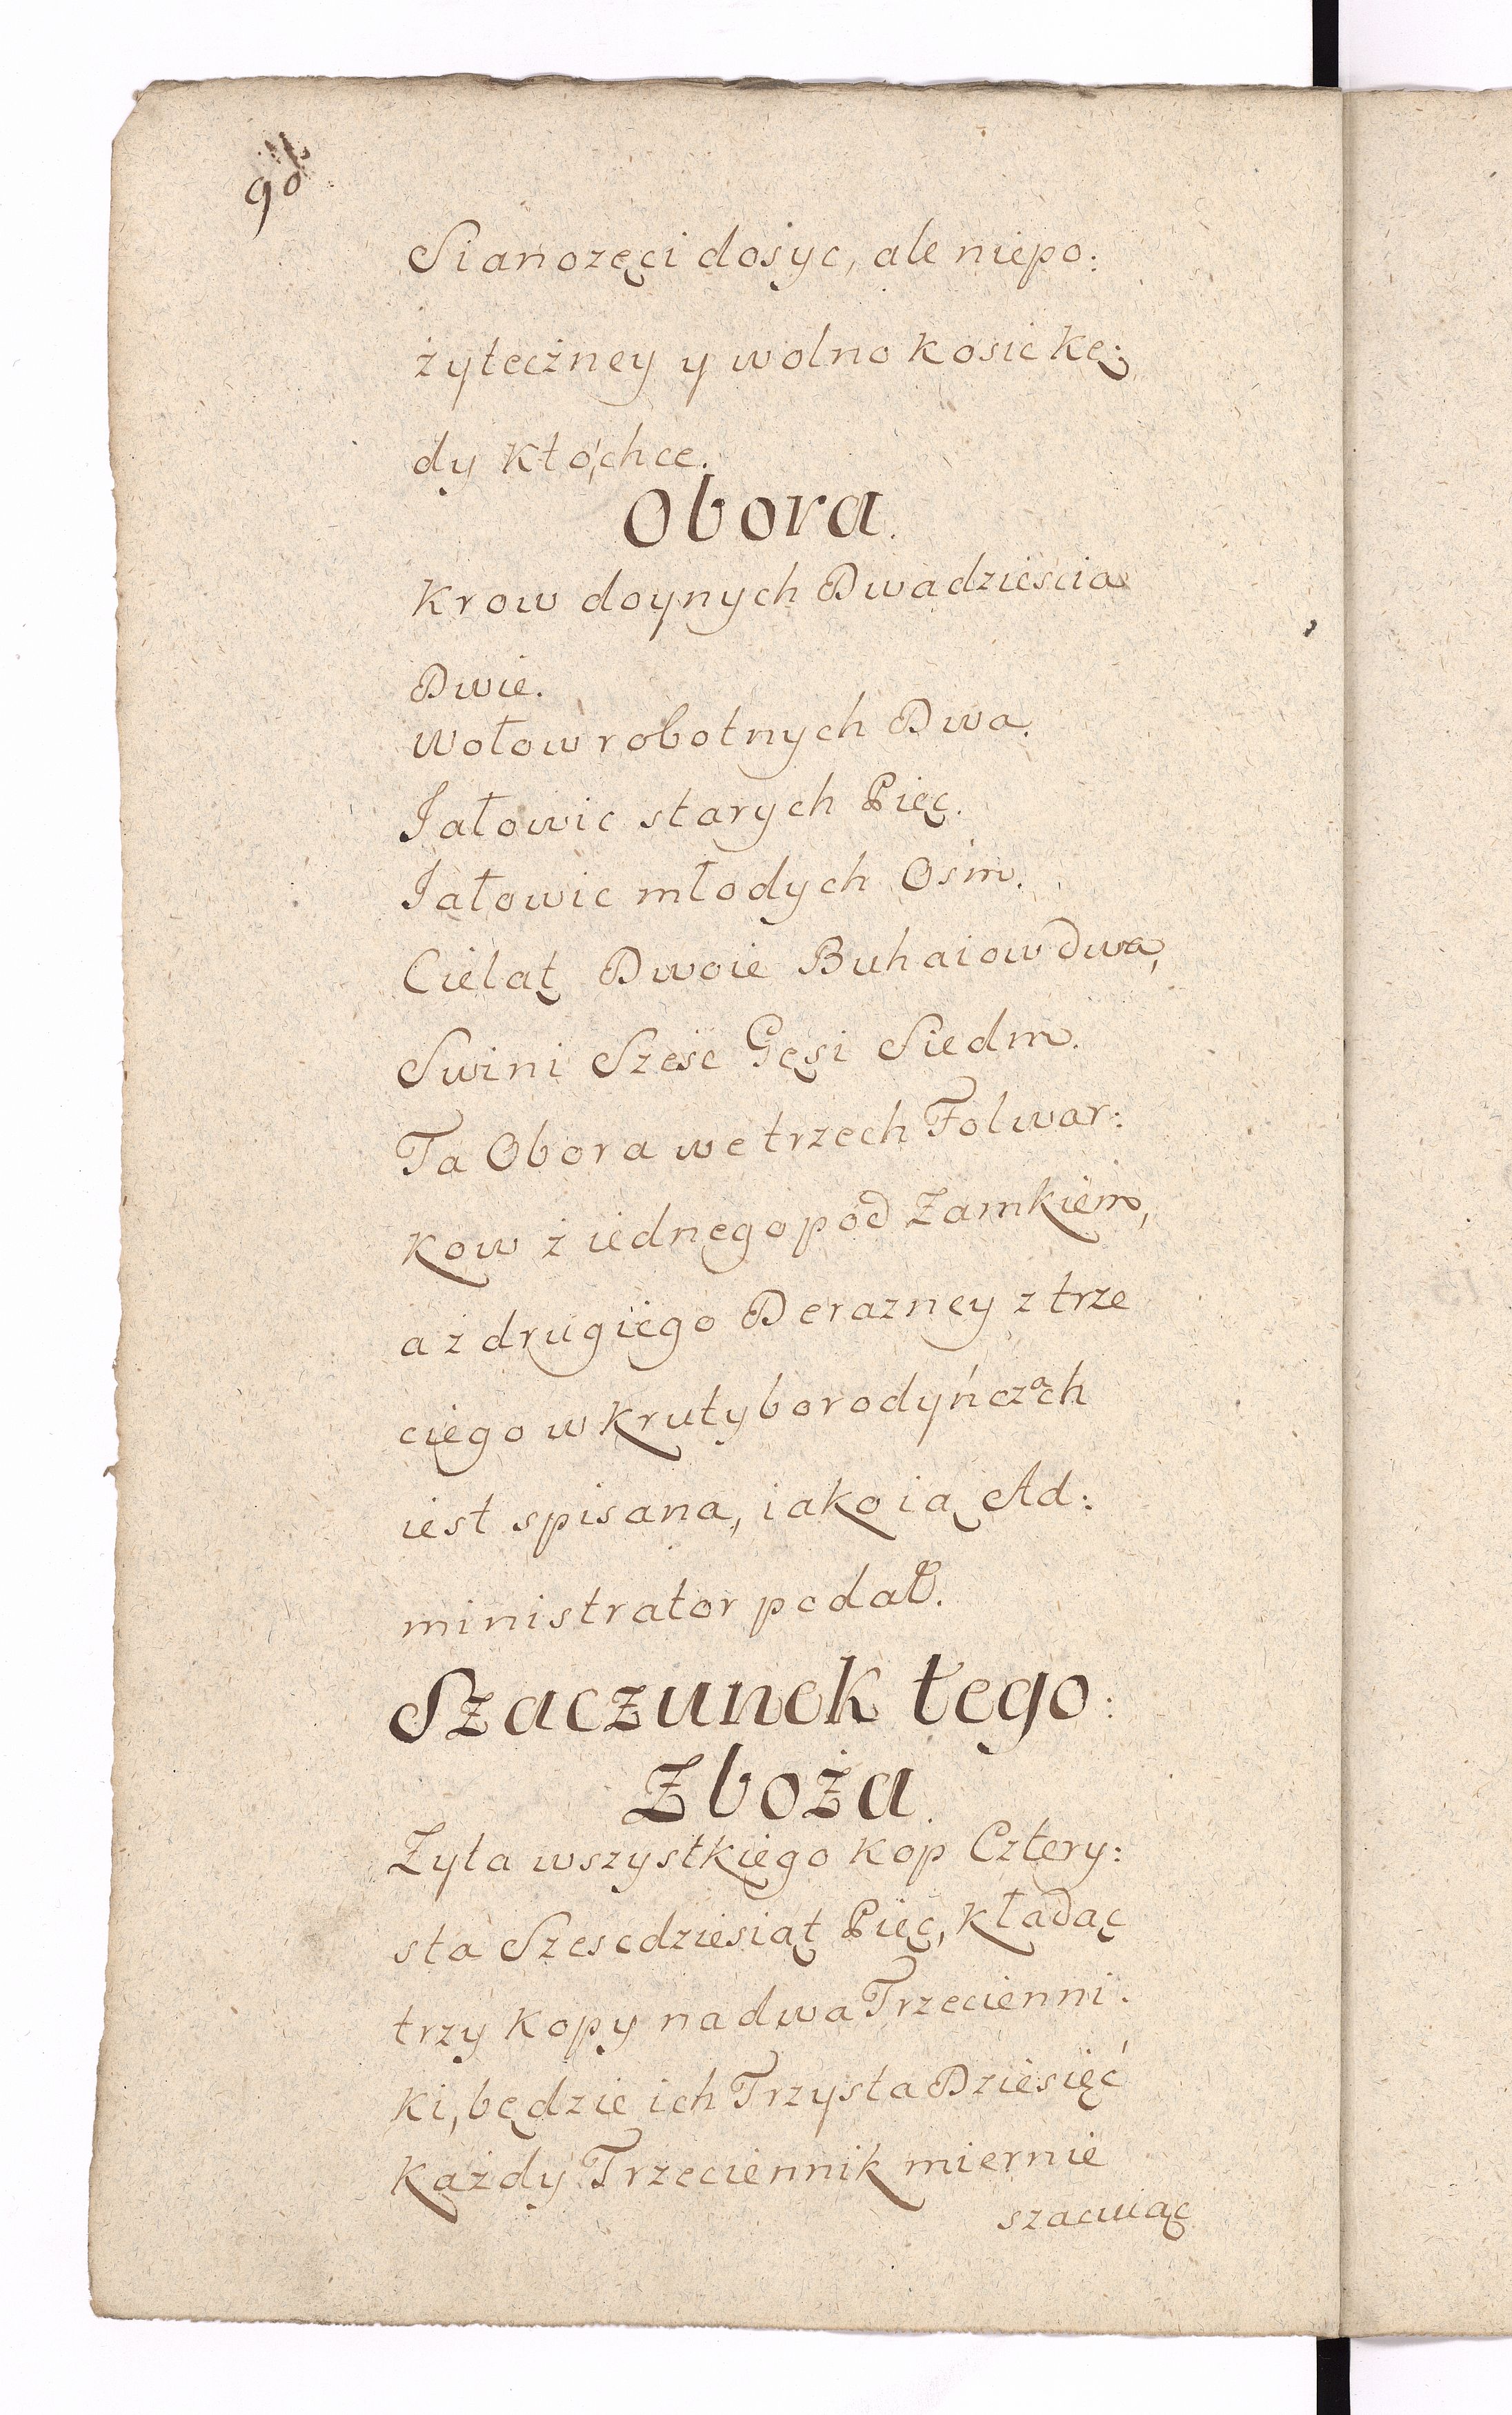 90
Sianozęci dosyc, ale niepo:
żyteczney y wolno kosic kę:
dy kto chce.
Obora.
Krow doynych Dwadziescia
Dwie.
Wołow robotnych Dwa.
Jałowic starych Pięc.
Jałowic młodych Osm.
Cieląt Dwoie Buhaiow dwa,
Swini Szesc Gęsi Siedm.
Ta Obora we trzech Folwar:
kow z iednego pod Zamkiem,
a z drugiego Derazney z trze
ciego w Krutyborodyńczach
iest spisana, iako ią Ad:
ministrator podał.
Szaczunek tego:
Zboża.
Zyta wszystkiego kop Cztery:
sta Szescdziesiąt Pięc, kładąc
trzy kopy na dwa Trzecienni:
ki, będzie ich Trzysta Dziesięć
Każdy Trzeciennik miernie
szacuiąc